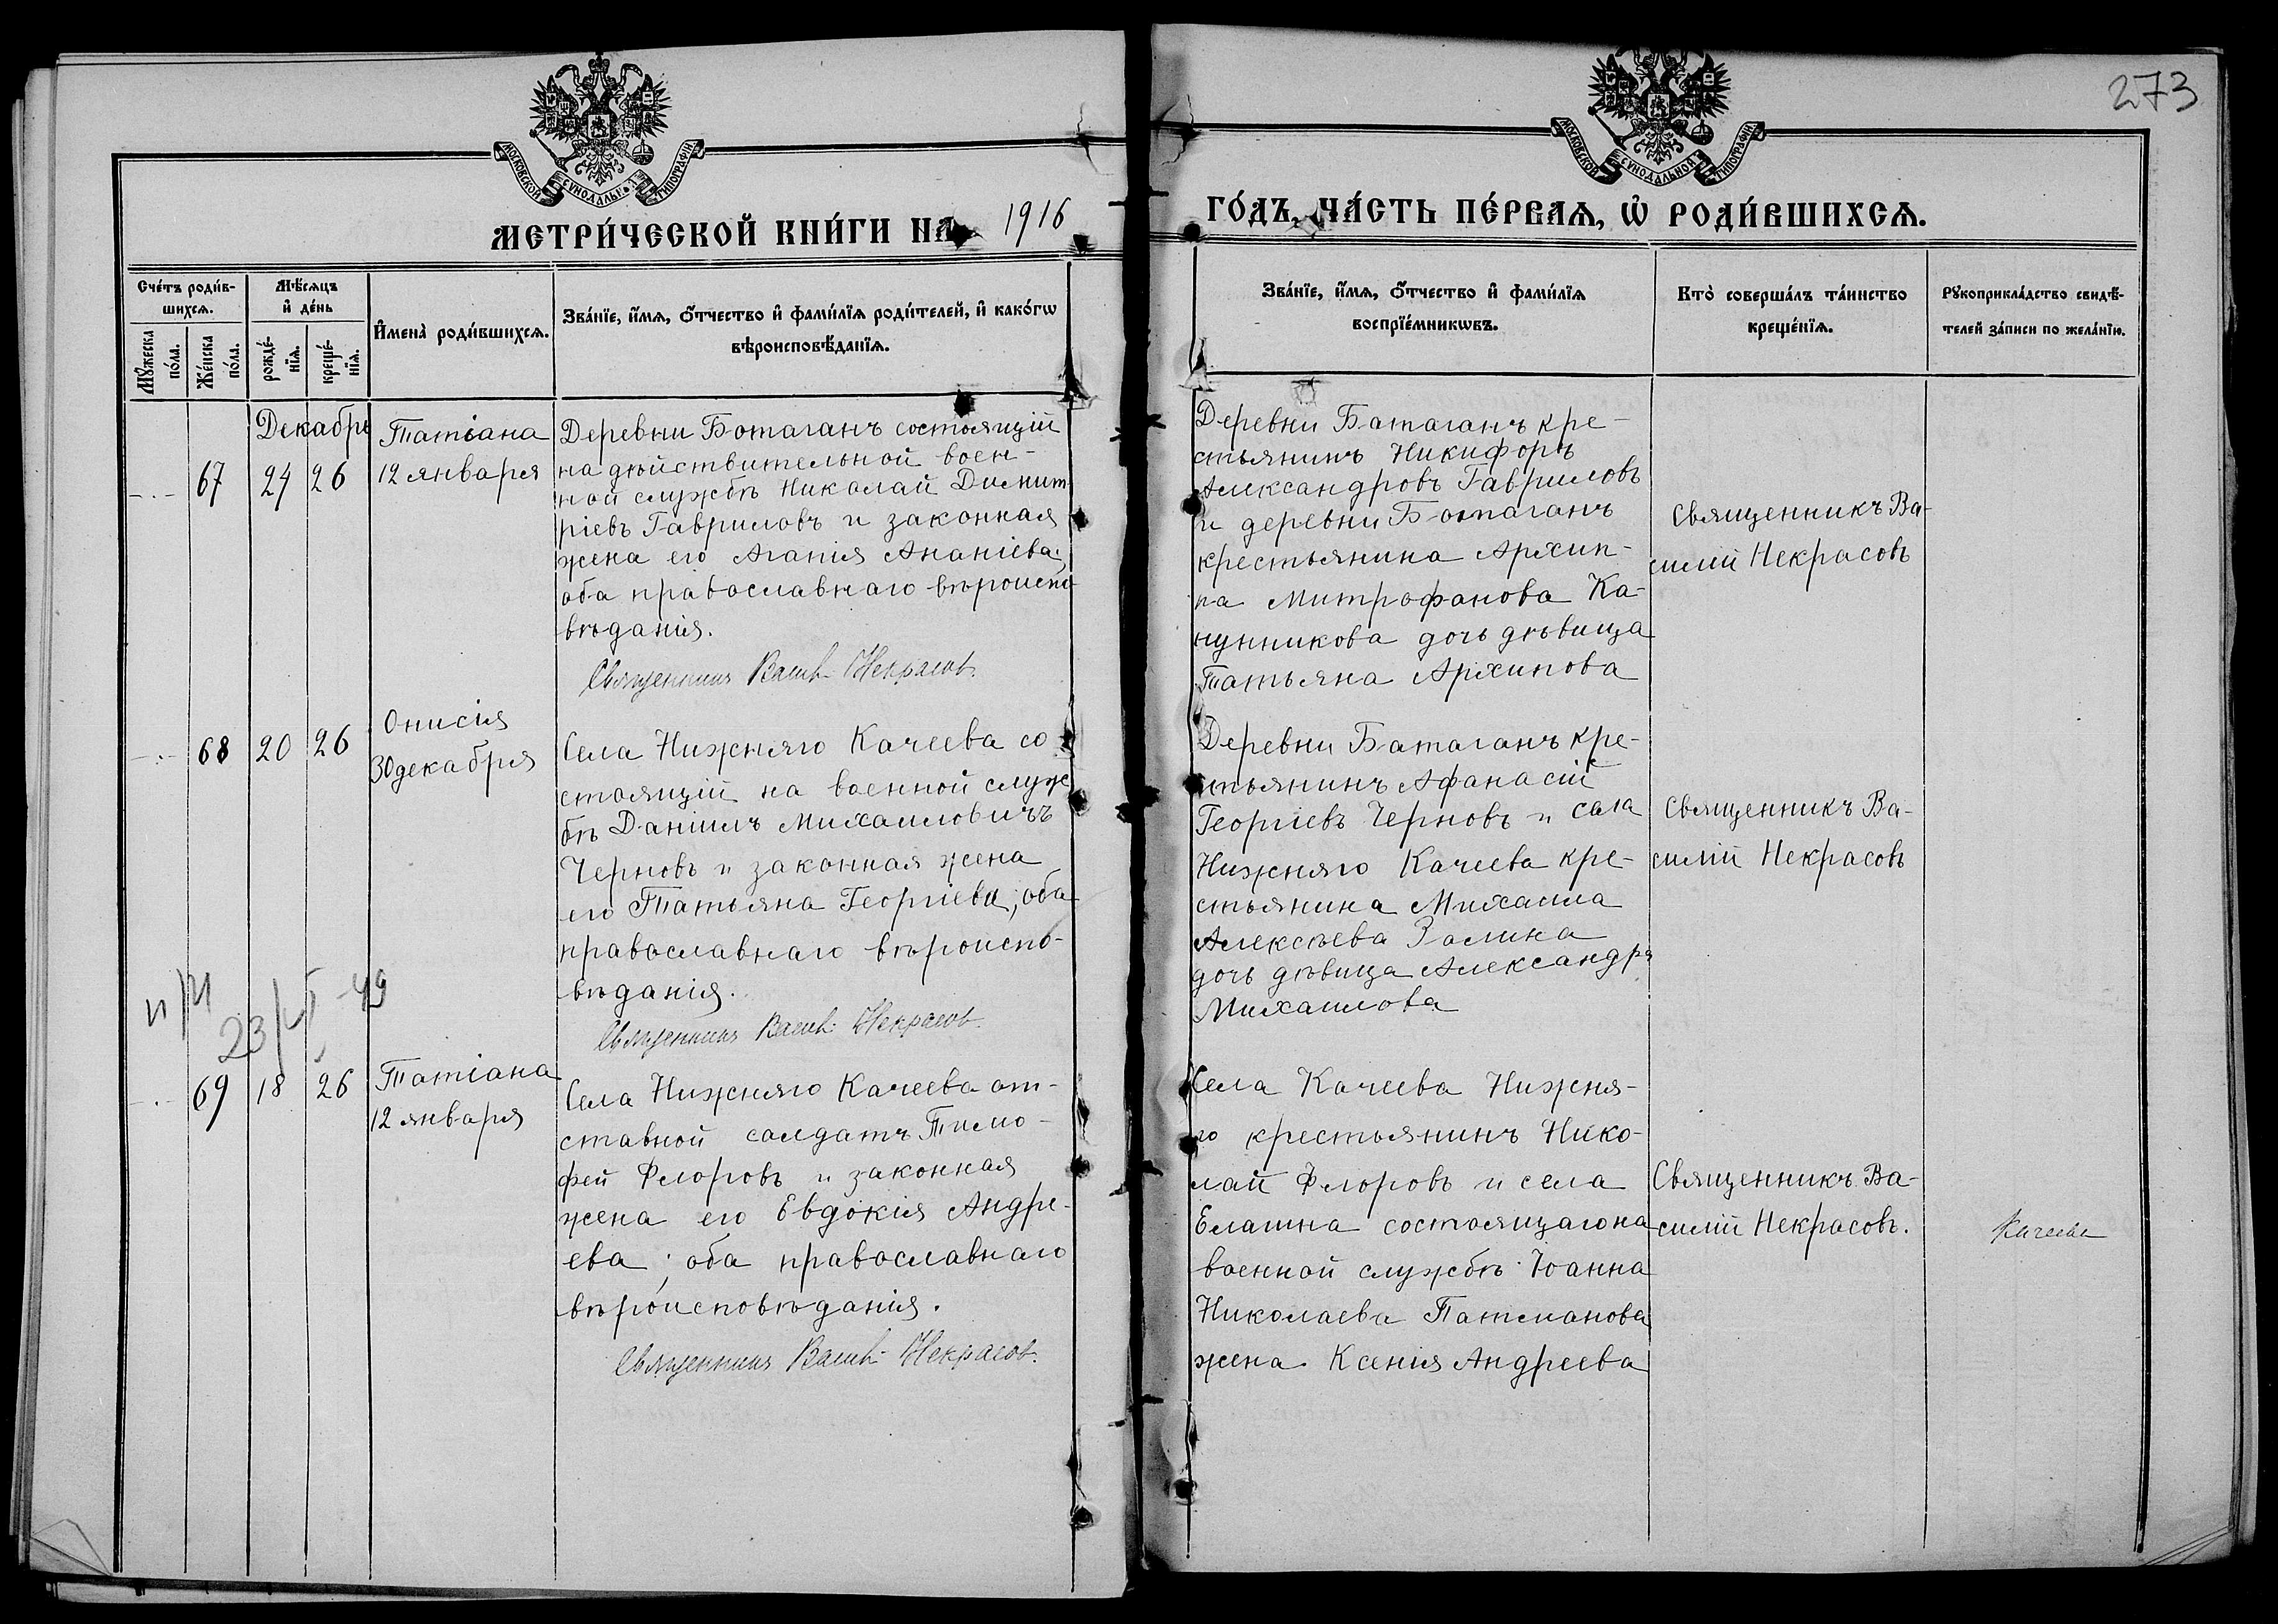 273
МОСКОВСКОЙ СѴНОДАЛЬНОЙ ТИПОГРАФІИ
МОСКОВСКОЙ СѴНОДАЛЬНОЙ ТИПОГРАФІИ
МЕТРИ́ЧЕСКОЙ КНИ́ГИ НА 1916
ГО́ДЪ, ЧА́СТЬ ПЕ́РВАЯ, Ѡ҆ РОДИ́ВШИХСЯ.
Сче́тъ роди́в-
шихся.
Мꙋ́жеска
по́ла.
Же́нска
по́ла.
Мѣ́сяцъ
и҆ де́нь
рожде́-
нїя.
креще́-
нїя.
И҆мена̀ роди́вшихся.
Зва́нїе, и҆́мя, ѻ҆́тчество и҆ фами́лїя роди́телей, и҆ како́гѡ
вѣроисповѣ́данїя.
Зва́нїе, и҆́мя, ѻ҆́тчество и҆ фами́лїя
воспрїе́мникѡвъ.
Кто̀ соверша́лъ та́инство
креще́нїя.
Рꙋкоприкла́дство свидѣ́-
телей за́писи по жела́нїю.
Декабрь
67
24
26
Татьана
12 января
Деревни Ботаганъ состоящій
на дѣйствительной воен-
ной службѣ Николай Димит
ріевъ Гавриловъ и законная
жена его Агапія Ананіева;
оба православнаго вѣроиспо-
вѣданія.
Священникъ Васил. Некрасов.
Деревни Батаганъ кре-
стьянинъ Никифоръ
Александровъ Гавриловъ
и деревни Ботаганъ
крестьянина Архип-
па Митрофанова Ка-
нунникова дочь дѣвица
Татьяна Архипова
Священникъ Ва-
силій Некрасовъ
68
20
26
Онисія
30 декабря
Села Нижняго Качеева со
стоящій на военной служ
бѣ Даніилъ Михаиловичъ
Черновъ и законная жена
его Татьяна Георгіева; оба
православнаго вѣроиспо-
вѣданія.
Священникъ Васил. Некрасов.
Деревни Батаганъ кре-
стьянинъ Афанасій
Георгіевъ Черновъ и села
Нижняго Качеева кре-
стьянина Михаила
Алексѣева Залина
дочь дѣвица Александра
Михаилова
Священникъ Ва-
силій Некрасовъ
69
18
26
Татіана
12 января
Села Нижняго Качеева от-
ставной солдатъ Тимо-
фей Флоровъ и законная
жена его Евдокія Андре-
ева; оба православнаго
вѣроисповѣданія.
Священникъ Васил. Некрасов.
Села Качеева Нижня-
го крестьянинъ Нико-
лай Флоровъ и села
Елашна состоящаго на
военной службѣ Іоанна
Николаева Патманова
жена Ксенія Андреева
Священникъ Ва-
силій Некрасовъ.